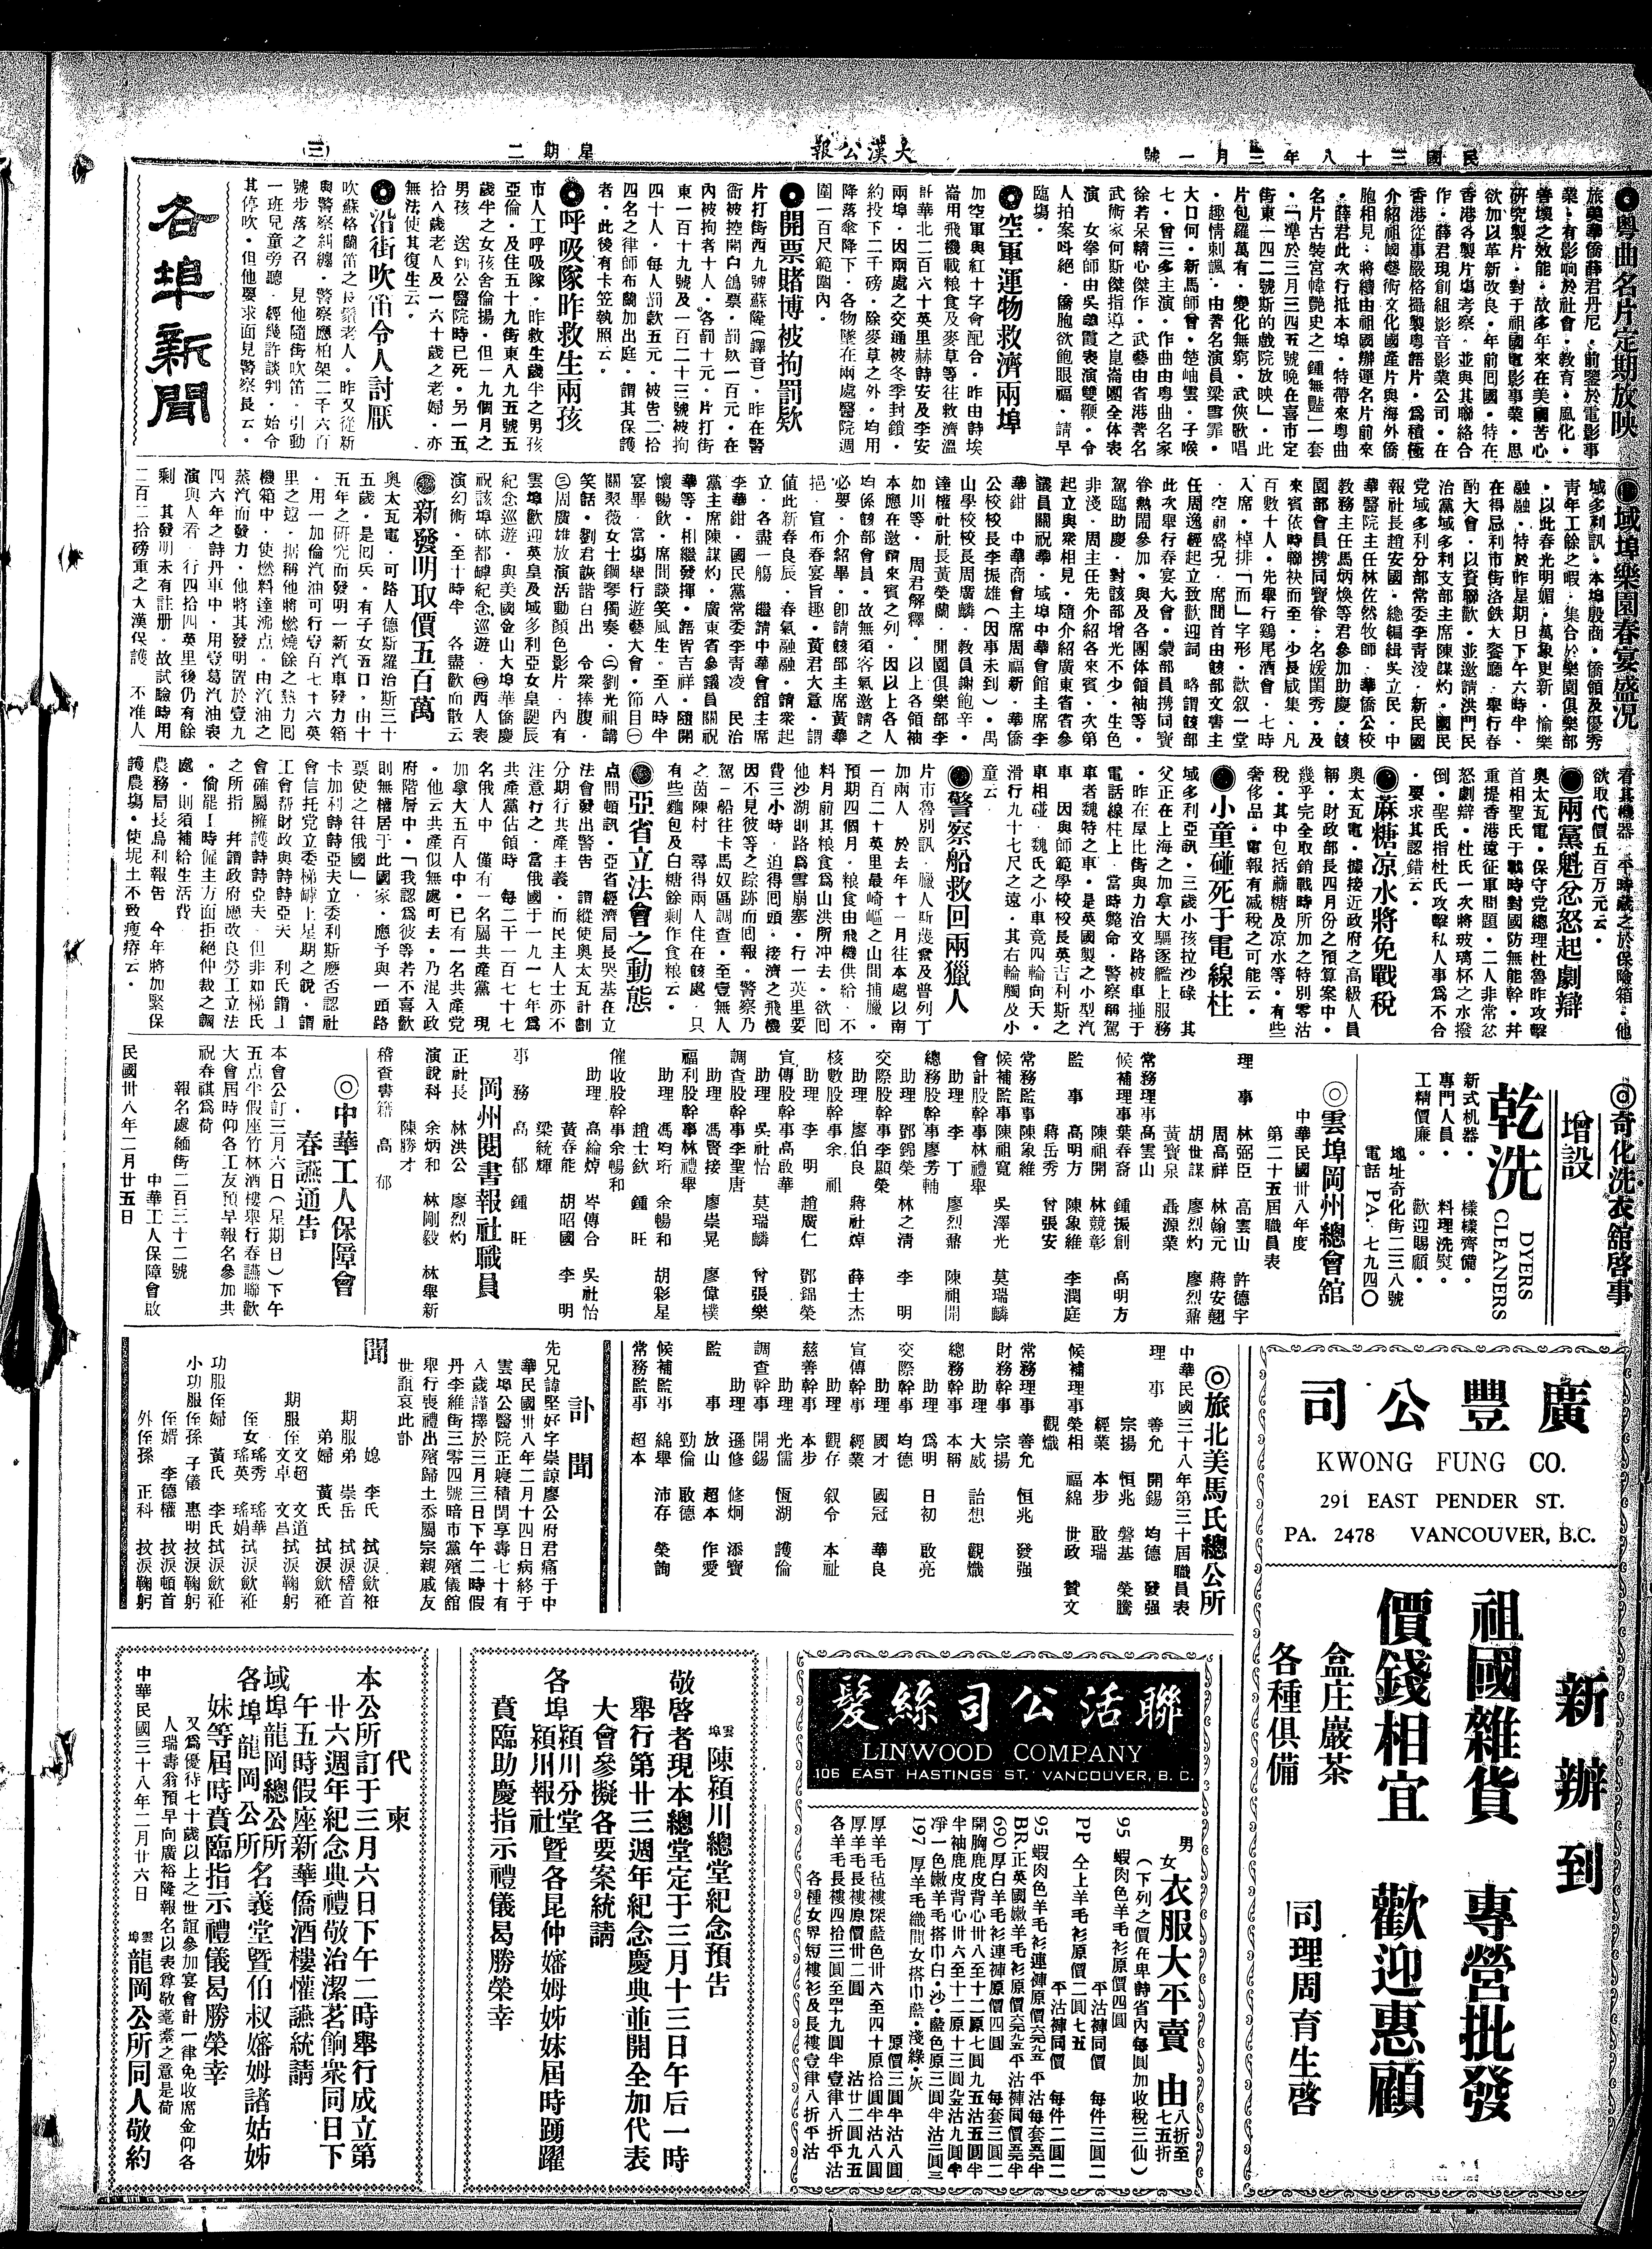 民國三十八年三月一號
大漢公報
星期二
(三)
各埠新聞
◉粵曲名片定期放映
旅美華僑薛君丹尼．前鑒於電影事
業．有影响於社會．教育．風化．
善壞之效能．故多年來在美國苦心
研究製片．對于祖國電影事業．思
欲加以革新改良．年前囘國．特在
香港各製片塲考察．並與其聯絡合
作．薛君現創組影音影業公司．在
香港從事嚴格攝製粵語片．爲積極
介紹祖國藝術文化國產片與海外僑
胞相見．將續由祖國辦運名片前來
．薛君此次行抵本埠．特帶來粵曲
名片古裝宮幃艷史之「鍾無豔」一套
．「準於三月三四五號晚在喜市定
街東一四二號斯的戲院放映」．此
片包羅萬有．變化無窮．武俠歌唱
．趣情刺諷．由著名演員梁雪霏．
大口何．新馬師曾．楚岫雲．子喉
七．曾三多主演．作曲由粵曲名家
徐若呆精心傑作．武藝由省港著名
武術家何斯傑指導之崑崙團全体表
演 女拳師由吳讌霞表演雙鞭．令
人拍案呌絕．僑胞欲飽眼福．請早
臨塲．
◉空軍運物救濟兩埠
加空軍與紅十字會配合．昨由詩埃
崙用飛機載粮食及麥草等往救濟溫
計華北二百六十英里赫詩安及李安
兩埠．因兩處之交通被冬季封鎖．
約投下二千磅．除麥草之外．均用
降落傘降下．各物墜在兩處醫院週
圍一百尺範圍內．
◉開票賭博被拘罰欵
片打街西九號蘇隆(譯音)．昨在警
衙被控開白鴿票．罰欵一百元．在
內被拘者十人．各罰十元．片打街
東一百十九號及一百二十三號被拘
四十人．每人罰款五元．被告二拾
四名之律師布蘭加出庭．謂其保護
者．此後有卡笠執照云．
◉呼吸隊昨救生兩孩
市人工呼吸隊．昨救生歲半之男孩
亞倫．及住五十九街東八九五號五
歲半之女孩舍倫揚．但一九個月之
男孩 送到公醫院時已死．另一五
拾八歲老人及一六十歲之老婦．亦
無法使其復生云．
◉沿街吹笛令人討厭
吹蘇格蘭笛之長鬚老人．昨又從新
與警察糾纏．警察應柏架二千六百
號步落之召 見他隨街吹笛．引動
一班兒童旁聽．經幾許談判．始令
其停吹．但他要求面見警察長云．
◉域埠樂園春宴盛況
域多利訊．本埠殷商．僑領及優秀
青年工餘之暇．集合於樂園俱樂部
．以此春光明媚．萬象更新．愉樂
融融．特於昨星期日下午六時半．
在得忌利市街洛鉄大餐廳．舉行春
酌大會．以資聯歡．並邀請洪門民
治黨域多利支部主席陳謀灼．國民
党域多利分部常委李青淩．新民國
報社長趙安國．總編緝吳立民．中
華醫院主任林佐然牧師．華僑公校
教務主任馬炳煥等君參加助慶．該
園部會員携同寶眷．名媛閨秀．及
來賓依時聯袂而至．少長咸集．凡
百數十人．先舉行鷄尾酒會．七時
入席．棹排「而」字形．歡叙一堂
．空前盛况．席間首由該部文書主
任周逸經起立致歡迎詞 略謂該部
此次舉行春宴大會．蒙部員携同寶
眷熱閙參加．與及各團体領袖等．
駕臨助慶．對該部增光不少．生色
非淺．周主任先介紹各來賓．次第
起立與衆相見．隨介紹廣東省省參
議員關祝華．域埠中華會館主席李
華鉗 中華商會主席周福新．華僑
公校校長李振雄(因事未到)．禺
山學校校長周廣鱗．教員謝飽辛．
達權社社長黃榮蘭．開園俱樂部李
如川等．周君解釋．以上各領袖
本應在邀請來賓之列．因以上各人
均係該部會員．故無須客氣邀請之
必要．介紹畢．卽請該部主席黃華
挹．宣布春宴旨趣．黃君大意．謂
值此新春良辰．春氣融融．請衆起
立．各盡一觴 繼請中華會舘主席
李華鉗．國民黨常委李青凌 民治
黨主席陳謀灼．廣東省參議員關祝
華等．相繼發揮．語皆吉祥．隨開
懷暢飲．席間談笑風生．至八時半
宴畢．當塲舉行遊藝大會．節目㊀
關翠薇女士鋼琴獨奏．㊁劉光祖講
笑話．劉君詼諧百出 令衆捧腹．
㊂周廣雄放演活動顏色影片．內有
雲埠歡迎英皇及域多利亞女皇誕辰
紀念巡遊．與美國金山大埠華僑慶
祝該埠砵都罅紀念巡遊．㊃西人表
演幻術．至十時半 各盡歡而散云
◉新發明取價五百萬
奥太瓦電．可路人德斯羅治斯三十
五歲．是囘兵．有子女五口．由十
五年之研究而發明一新汽車發力箱
．用一加倫汽油可行壹百七十六英
里之遠．据稱他將燃燒餘之熱力囘
機箱中．使燃料達沸点．由汽油之
蒸汽而發力．他將其發明置於壹九
四六年之詩丹車中．用壹葛汽油表
演與人看．行四拾四英里後仍有餘
剩 其發明未有註册．故試驗時用
二百二拾磅重之大漢保護 不准人
看其機器．平時藏之於保險箱．他
欲取代價五百万元云．
◉兩黨魁忿怒起劇辯
奥太瓦電．保守党總理杜魯昨攻擊
首相聖氏于戰時對國防無能幹．并
重提香港遠征軍問題．二人非常忿
怒劇辯．杜氏一次將玻璃杯之水撥
倒．聖氏指杜氏攻擊私人事爲不合
．要求其認錯云．
◉蔴糖凉水將免戰稅
奥太瓦電．據接近政府之高級人員
稱．財政部長四月份之預算案中．
幾乎完全取銷戰時所加之特別零沽
稅．其中包括蔴糖及凉水等．有些
奢侈品．電報有减稅之可能云．
◉小童碰死于電線柱
域多利亞訊．三歲小孩拉沙碌 其
父正在上海之加拿大驅逐艦上服務
．昨在屋比街與力治文路被車撞于
電話線柱上．當時斃命．警察稱駕
車者魏特之車．是英國製之小型汽
車 因與師範學校校長英吉利斯之
車相碰．魏氏之小車竟四輪向天．
滑行九十七尺之遠．其右輪觸及小
童云
◉警察船救回兩獵人
片市魯別訊．臘人斯蔑衾及普列丁
加兩人 於去年十一月往本處以南
一百二十英里最崎嶇之山間捕臘．
預期四個月．粮食由飛機供給．不
料月前其粮食爲山洪所冲去．欲囘
他沙湖則路爲雪崩塞．行一英里要
費三小時．迫得囘頭．接濟之飛機
因不見彼等之踪跡而囘報．警察乃
駕一船往卡馬奴區調查．至壹無人
之茵陳村 尋得兩人住在該處．只
有些麵包及白糖餘剩作食粮云．
◉亞省立法會之動態
点問頓訊．亞省經濟局長哭基在立
法會發出警告 謂縱使奥太瓦計劃
分期行共產主義．而民主人士亦不
注意行之．當俄國于一九一七年爲
共產黨佔領時 每二千一百七十七
名俄人中 僅有一名屬共產黨 現
加拿大五百人中．已有一名共產党
．他云共產似無處可去．乃混入政
府階層中．「我認爲彼等若不喜歡
則無權居于此國家．應予與一頭路
票使之往俄國」．
卡加利詩詩亞夫立委利斯應否認社
會信托党立委梯罅上星期之說．謂
工會帮財政與詩詩亞夫 利氏謂工
會確屬擁護詩詩亞夫 但非如梯氏
之所指 幷謂政府應改良勞工立法
．倘罷工時僱主方面拒絕仲裁之調
處．則須補給生活費
農務局長烏利報告 今年將加緊保
護農塲．使坭土不致瘦瘠云．
◎奇化洗衣舘啓事
增設
乾洗
DYERS
CLEANERS
新式机器． 樣樣齊備．
專門人員． 料理洗熨．
工精價廉． 歡迎賜顧．
地址奇化街二三八號
電話 PA. 七九四〇
◎雲埠岡州總會舘
中華民國卅八年度
第二十五屆職員表
理事 林弼臣 高雲山 許德宇
周高祥 林翰元 蔣安翹
胡世謀 廖烈灼 廖烈鼐
黃寶泉 聶源業
常務理事高雲山
候補理事葉春裔 鍾振創 高明方
陳祖開 林競彰
監事 高明方 陳象維 李潤庭
蔣岳秀 曾張安
常務監事陳象維
候補監事陳祖寬 吳澤光 莫瑞麟
會計股幹事林禮舉
助理 李丁 廖烈鼐 陳祖開
總務股幹事廖芳輔
助理 鄧錦榮 林之清 李明
交際股幹事李顯榮
助理 廖伯良 蔣社焯 薛士杰
核數股幹事余祖
助理 李明 趙廣仁 鄧錦榮
宣傳股幹事高啟華
助理 吳社怡 莫瑞麟 曾張樂
調查股幹事李聖唐
助理 馮賢接 廖崇晃 廖偉樸
福利股幹事林禮舉
助理 馮均珩 余暢和 胡彩星
趙士欽 鍾旺
催收股幹事余暢和
助理 高綸焯 岑傳合 吳社怡
黃春能 胡昭國 李明
梁統輝
事務 高郁 鍾旺
岡州閱書報社職員
正社長 林洪公 廖烈灼
演說科 余炳和 林剛毅 林舉新
陳勝才
稽查書籍 高郁
◎中華工人保障會
春讌通告
本會公訂三月六日(星期日)下午
五点半假座竹林酒樓舉行春讌聯歡
大會屆時仰各工友預早報名參加共
祝春祺爲荷
報名處緬街二百三十二號
中華工人保障會啟
民國卅八年二月廿五日
廣豐公司
KWONG FUNG CO.
291 EAST PENDER ST.
PA. 2478 VANCOUVER, B.C.
新辦到
祖國雜貨 專營批發
價錢相宜 歡迎惠顧
盒庄巖茶
各種俱備
司理周育生啓
◎旅北美馬氏總公所
中華民國三十八年第三十屆職員表
理事 善允 開錫 均德 發强
宗揚 恒兆 磐基 榮騰
經業 本步 敢瑞
候補理事榮相 福綿 世政 贊文
觀熾
常務理事 善允 恒兆 發强
財務幹事 宗揚
助理 大威 詒想 觀熾
總務幹事 本稱
助理 爲明 日初 啟亮
交際幹事 均德
助理 國才 國冠 華良
宣傳幹事 經業
助理 觀存 叙令 本祉
慈善幹事 本步
助理 光儒 恆湖 護倫
調查幹事 開錫
助理 遜修 修炯 添寶
監事 放山 超本 作愛
勁倫 敢德
候補監事 綿舉 沛存 榮詢
常務監事 超本
訃聞
先兄諱堅好字崇諒廖公府君痛于中
華民國卅八年二月十四日病終于
雲埠公醫院正寢積閏享壽七十有
八歲謹擇於三月三日下午二時假
丹李維街三零四號暗市黨殯儀舘
舉行喪禮出殯歸土忝屬宗親戚友
世誼哀此訃
聞
媳 李氏 拭淚歛袵
期服弟 崇岳 拭淚稽首
弟婦 黃氏 拭淚歛袵
期服侄 文超 文道
文卓 文昌 拭淚鞠躬
侄女 瑤秀 瑤華
瑤英 瑤娟 拭淚歛袵
功服侄婦 黃氏 李氏 拭淚歛袵
小功服侄孫 子儀 惠明 抆淚鞠躬
侄婿 李德權 抆淚頓首
外侄孫 正科 抆淚鞠躬
聯活公司絲髮
LINWOOD COMPANY
106 EAST HASTINGS ST. VANCOUVER, B. C.
男女衣服大平賣 由八折至七五折
(下列之價在卑詩省內每圓加收稅三仙)
95 蝦肉色羊毛衫原價四圓 平沽褲同價 每件三圓二
PP 仝上羊毛衫原價二圓七五 平沽褲同價 每件二圓二
690 厚白羊毛衫連褲原價四圓 每套三圓二
197 厚羊毛織間女搭巾藍．淺綠．灰
原價三圓半沽八圓
厚羊毛毡褸深藍色卅六至四十原拾圓半沽八圓
厚羊毛長褸原價卅二圓 沽廿二圓九五
各羊毛長褸四拾三圓至四十九圓半壹律八折平沽
各種女界短褸衫及長褸壹律八折平沽
雲埠陳潁川總堂紀念預告
敬啓者現本總堂定于三月十三日午后一時
舉行第廿三週年紀念慶典並開全加代表
大會參擬各要案統請
各埠潁川分堂潁川報社暨各昆仲嬸姆姊妹屆時踴躍
賁臨助慶指示禮儀曷勝榮幸
代柬
本公所訂于三月六日下午二時舉行成立第
廿六週年紀念典禮敬治潔茗餉衆同日下
午五時假座新華僑酒樓懽讌統請
域埠龍岡總公所
各埠龍岡公所名義堂暨伯叔嬸姆諸姑姊
妹等屆時賁臨指示禮儀曷勝榮幸
又爲優待七十歲以上之世誼參加宴會計一律免收席金仰各
人瑞壽翁預早向廣裕隆報名以表尊敬耄耋之意是荷
中華民國三十八年二月廿六日 雲埠龍岡公所同人敬約